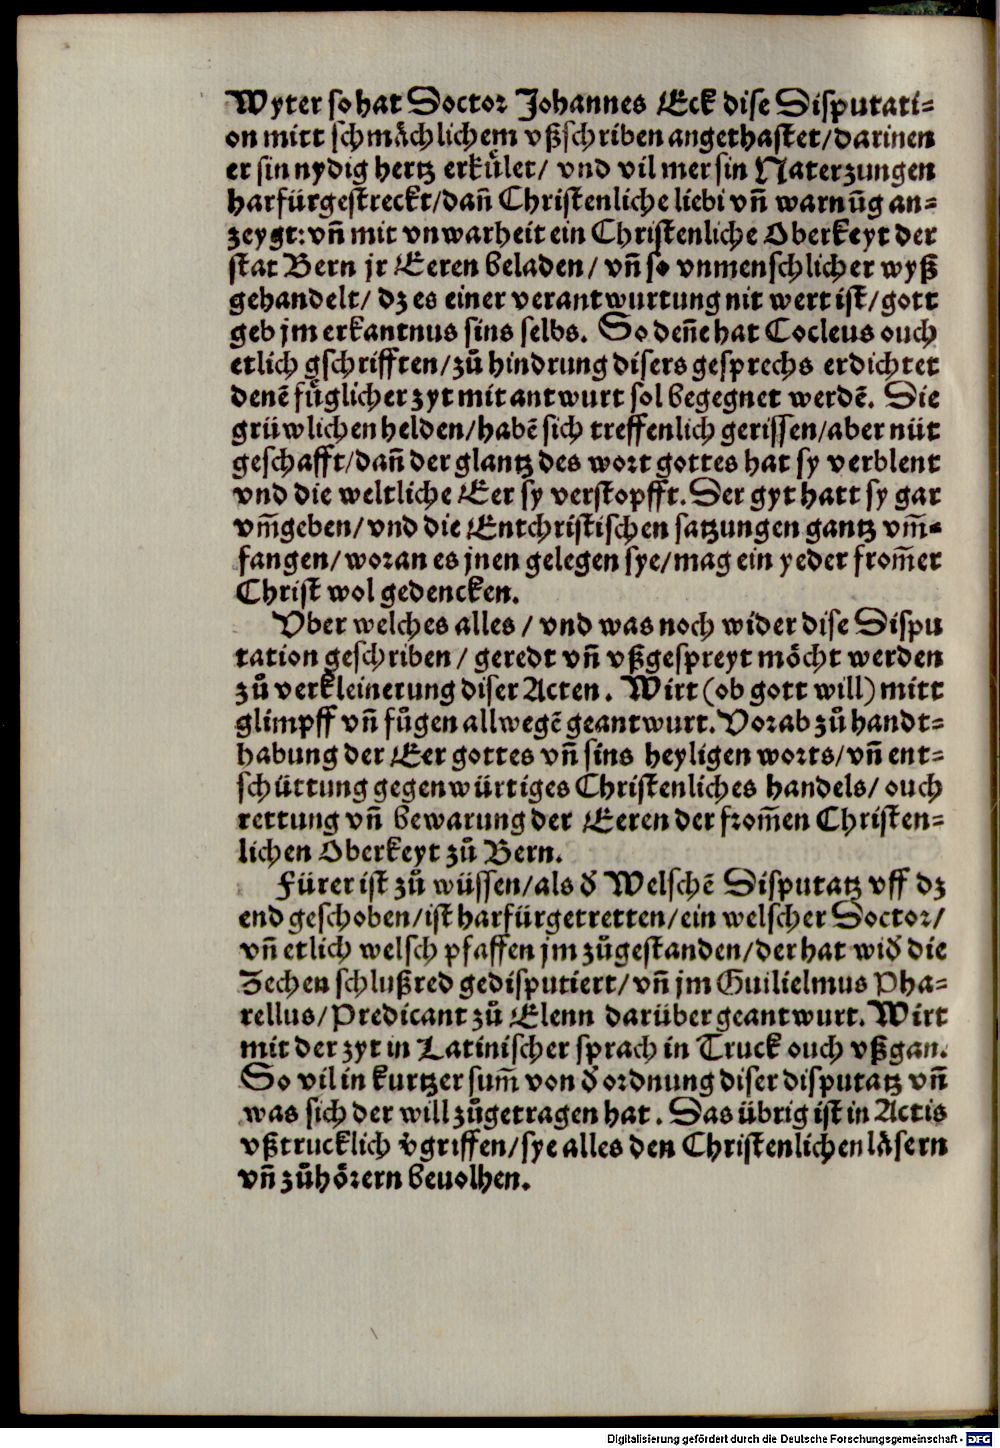 Wyter so hat Doctor Johannes Eck dise Disputati=
on mitt schmächlichem vßschriben angethastet/darinen
er sin nydig hertz erkůlet/ vnd vil mer sin Naterzungen
harfürgestreckt/dañ Christenliche liebi vñ warnũg an=
zeygt: vñ mit vnwarheit ein Christenliche Oberkeyt der
stat Bern jr Eeren beladen/ vñ so vnmenschlicher wyß
gehandelt/ dz es einer verantwurtung nit wert ist/gott
geb jm erkantnus sins selbs. So deñe hat Cocleus ouch
etlich gschrifften/zů hindrung disers gesprechs erdichtet
denẽ fůglicher zyt mit antwurt sol begegnet werdẽ. Die
grüwlichen helden/habẽ sich treffenlich gerissen/aber nüt
geschafft/dañ der glantz des wort gottes hat sy verblent
vnd die weltliche Eer sy verstopfft. Der gyt hatt sy gar
vm̃geben/vnd die Entchristischen satzungen gantz vm̃=
fangen/woran es jnen gelegen sye/mag ein yeder from̃er
Christ wol gedencken.
Vber welches alles / vnd was noch wider dise Dispu
tation geschriben / geredt vñ vßgespreyt möcht werden
zů verkleinerung diser Acten. Wirt (ob gott will) mitt
glimpff vñ fůgen allwegẽ geantwurt. Vorab zů handt=
habung der Eer gottes vñ sins heyligen worts/vñ ent=
schüttung gegenwürtiges Christenliches handels/ ouch
rettung vñ bewarung der Eeren der from̃en Christen=
lichen Oberkeyt zů Bern.
Fürer ist zů wüssen/als đ Welschẽ Disputatz vff dz
end geschoben/ist harfürgetretten/ein welscher Doctor/
vñ etlich welsch pfaffen jm zůgestanden/der hat wiđ die
Zechen schlußred gedisputiert/vñ jm Guilielmus Pha=
rellus/Predicant zů Elenn darüber geantwurt. Wirt
mit der zyt in Latinischer sprach in Truck ouch vßgan.
So vil in kurtzer sum̃ von đ ordnung diser disputatz vñ
was sich der will zůgetragen hat. Das übrig ist in Actis
vßtrucklich v̊griffen/sye alles den Christenlichen läsern
vñ zůhörern beuolhen.
Digitalisierung gefördert durch die Deutsche Forschungsgemeinschaft - DFG